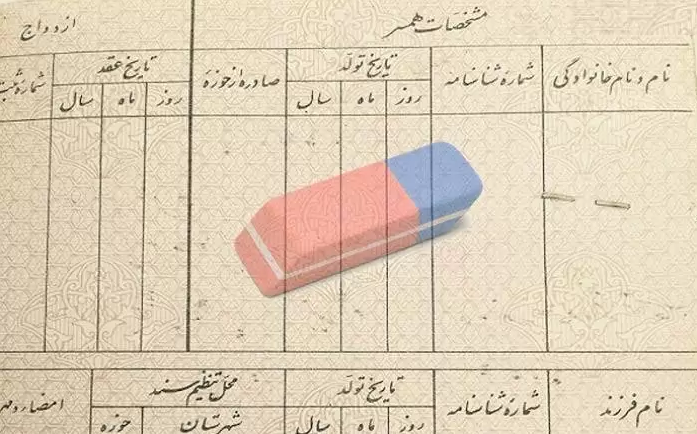 مشخصات همسر ازدواج
نام و نام خانوادگی شمارهٔ شناسنامه تاریخ تولد صادره از حوزهٔ تاریخ عقد شمارهٔ ثبت
روز ماه سال روز ماه سال
نام فرزند شمارهٔ شناسنامه تاریخ تولد محل تنظیم سند امضاء و مهر
روز ماه سال شهرستان حوزه